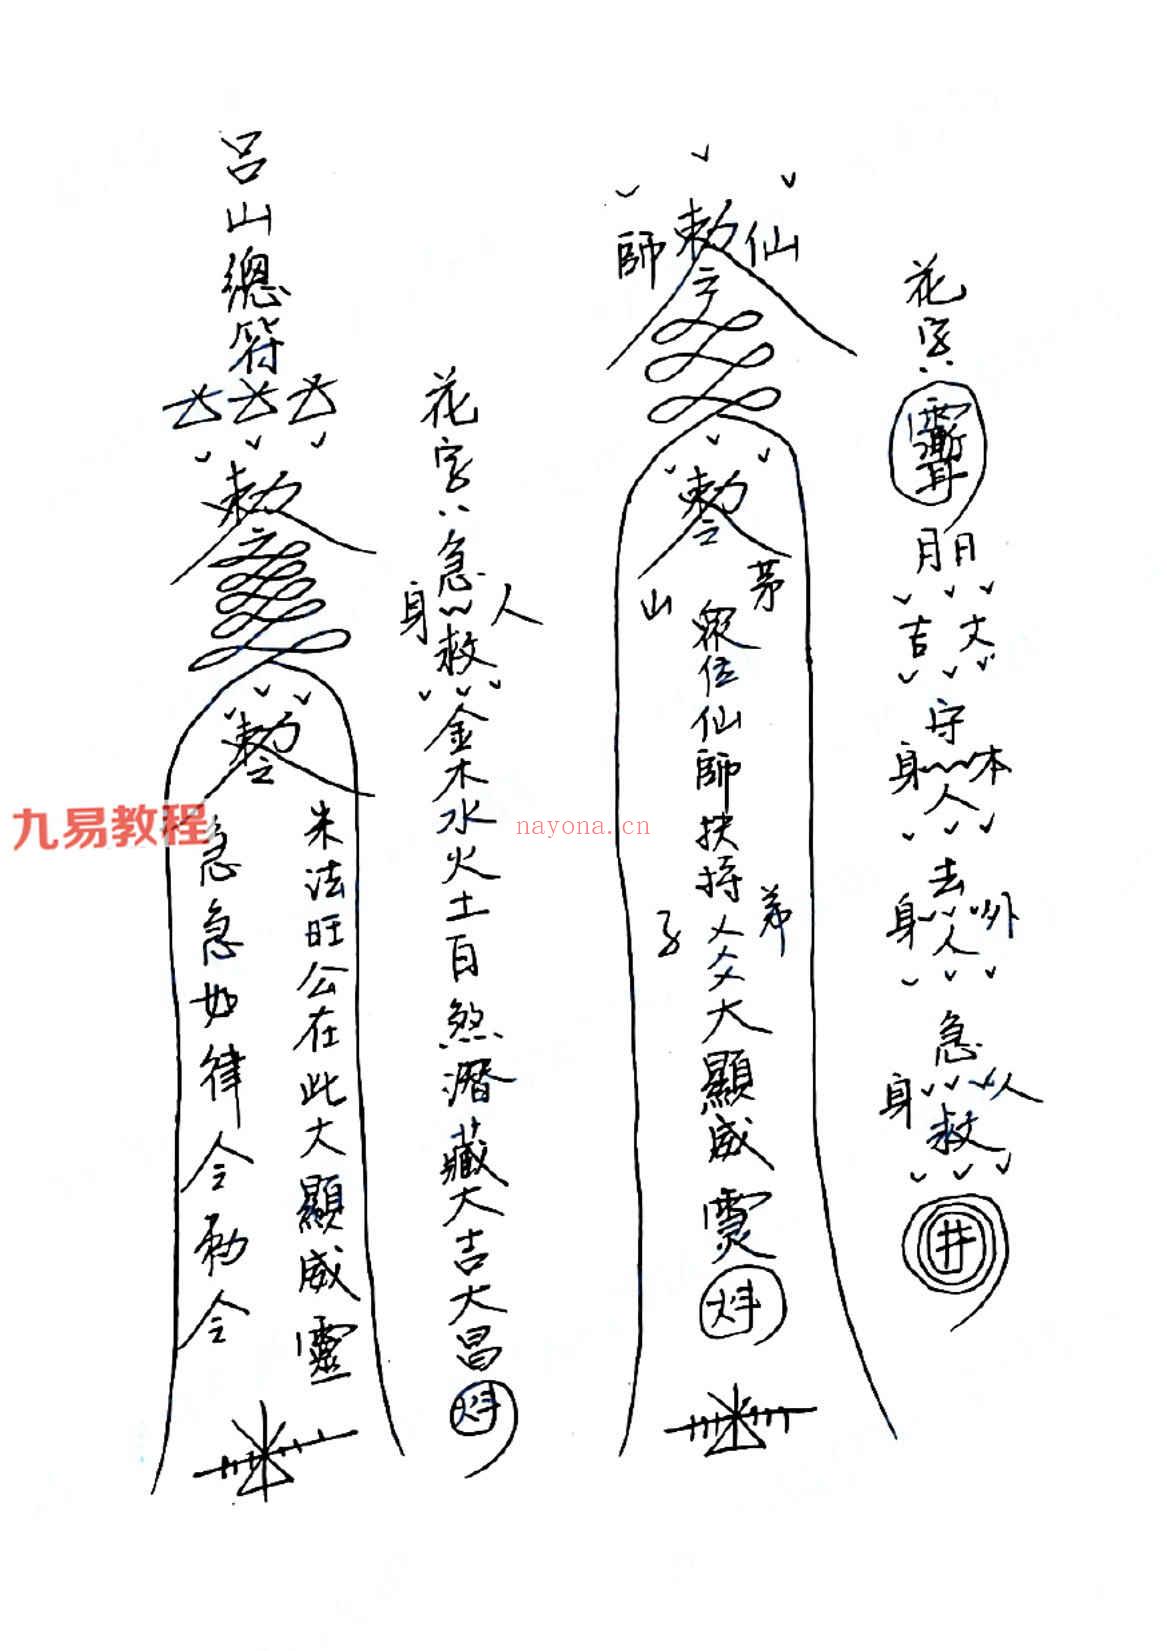 花字：
月日
古丈
守
本人身
去
外人身
急
人身
救
井
仙敕師
敕
茅山
眾位仙師扶持
弟子
大顯威靈
花字：急
人身
救
金木水火土百煞潛藏大吉大昌
呂山總符
敕
敕
朱法旺公在此大顯威靈
急急如律令勅令
九易教程
nayona.cn